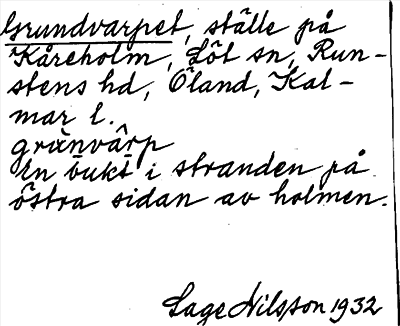 Grundvarpet, ställe på
Kåreholm, Löt sn, Run-
stens hd, Öland, Kal-
mar l.
grànvârp
En bukt i stranden på
östra sidan av holmen.
Sage Nilsson 1932